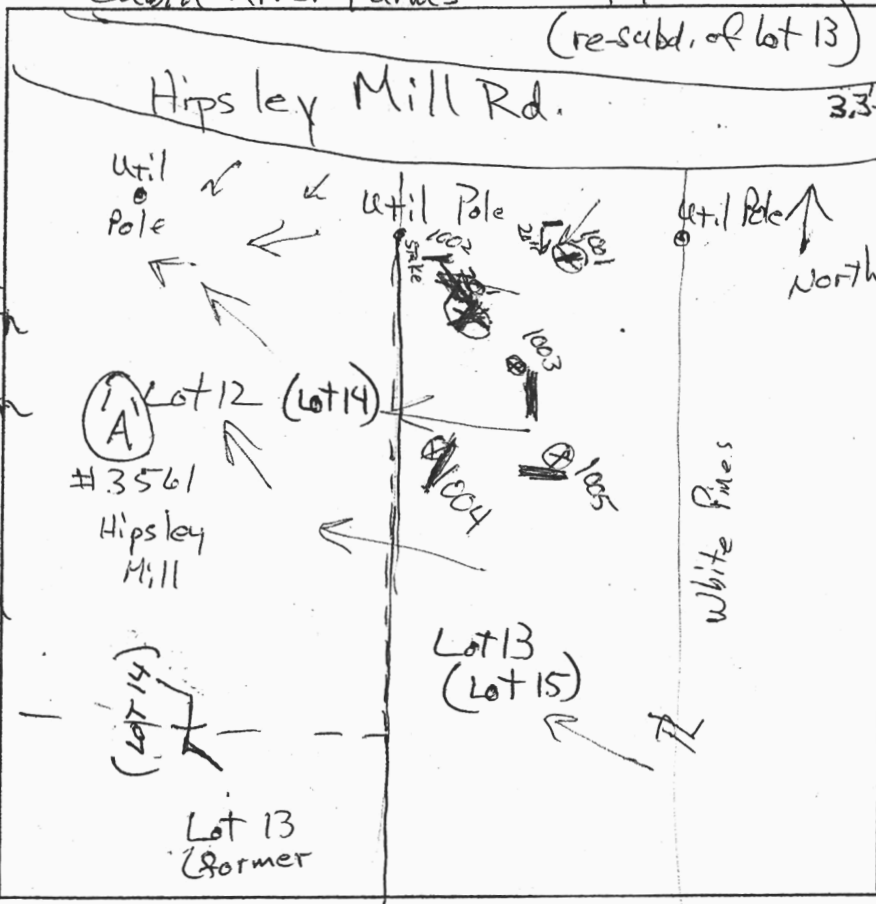 (re-subd. of Lot 13)
Hipsley Mill Rd.
Util
Pole
Util Pole
Util Pole
North
stake
1002
20ft
1001
1003
1 Lot 12 (Lot 14)
A
#3561
Hipsley
Mill
1004
1005
White Pines
Lot 13
(Lot 15)
PL
(Lot 14)
Lot 13
(former